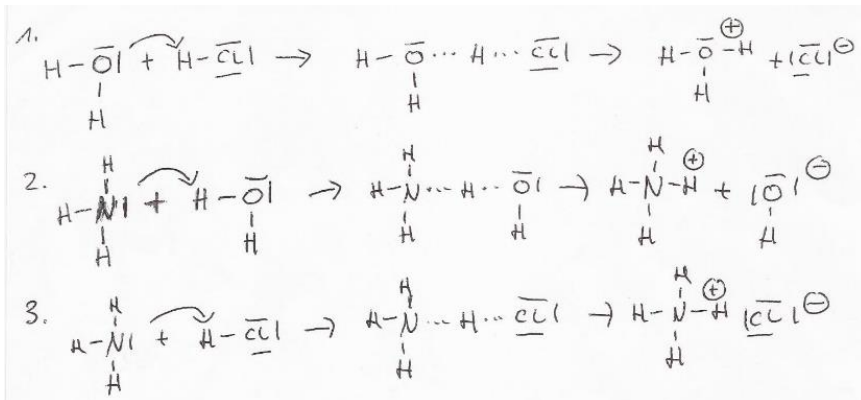 1.
H-O̅| + H-C̲l̅| → H-O̅···H···C̲l̅| → H-O̅-H ⊕ + |C̲l̅|⊖
H H H
H H H
2. H-N| + H-O̅| → H-N···H···O̅| → H-N-H ⊕ + |O̅|⊖
H H H H H H
H H H
3. H-N| + H-C̲l̅| → H-N···H···C̲l̅| → H-N-H ⊕ |C̲l̅|⊖
H H H